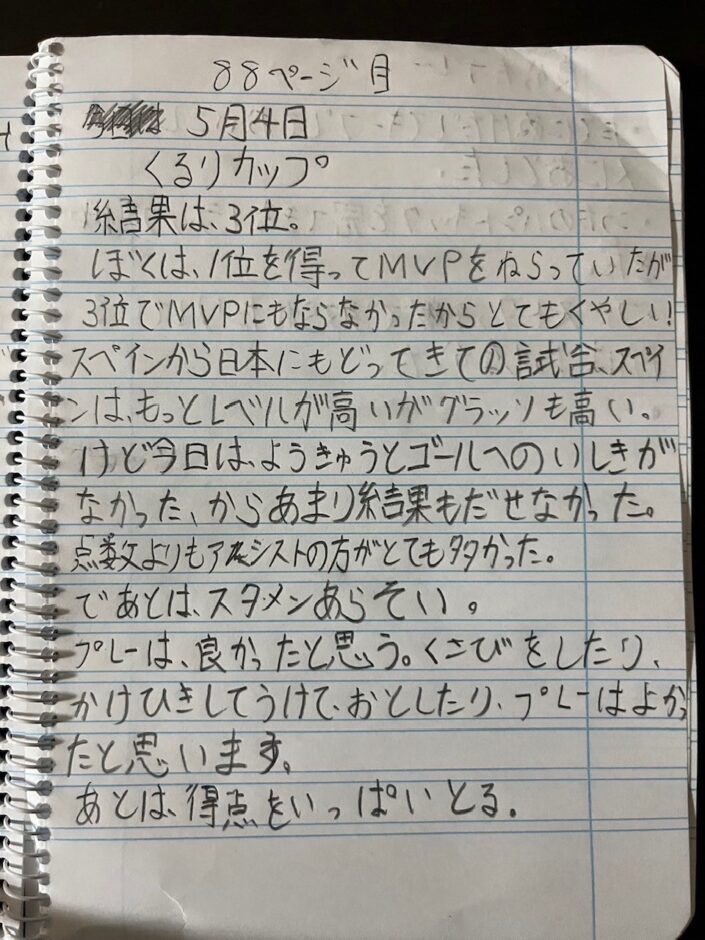 88ページ目
5月4日
くるりカップ
結果は、3位。
ぼくは、1位を得ってMVPをねらっていたが
3位でMVPにもならなかったからとてもくやしい!
スペインから日本にもどってきての試合、スペイ
ンは、もっとレベルが高いがグラッソも高い。
けど今日は、ようきゅうとゴールへのいしきが
なかった、からあまり結果もだせなかった。
点数よりもアシストの方がとても多かった。
であとは、スタメンあらそい。
プレーは、良かったと思う。くさびをしたり、
かけひきしてうけて、おとしたり、プレーはよかっ
たと思います。
あとは、得点をいっぱいとる。